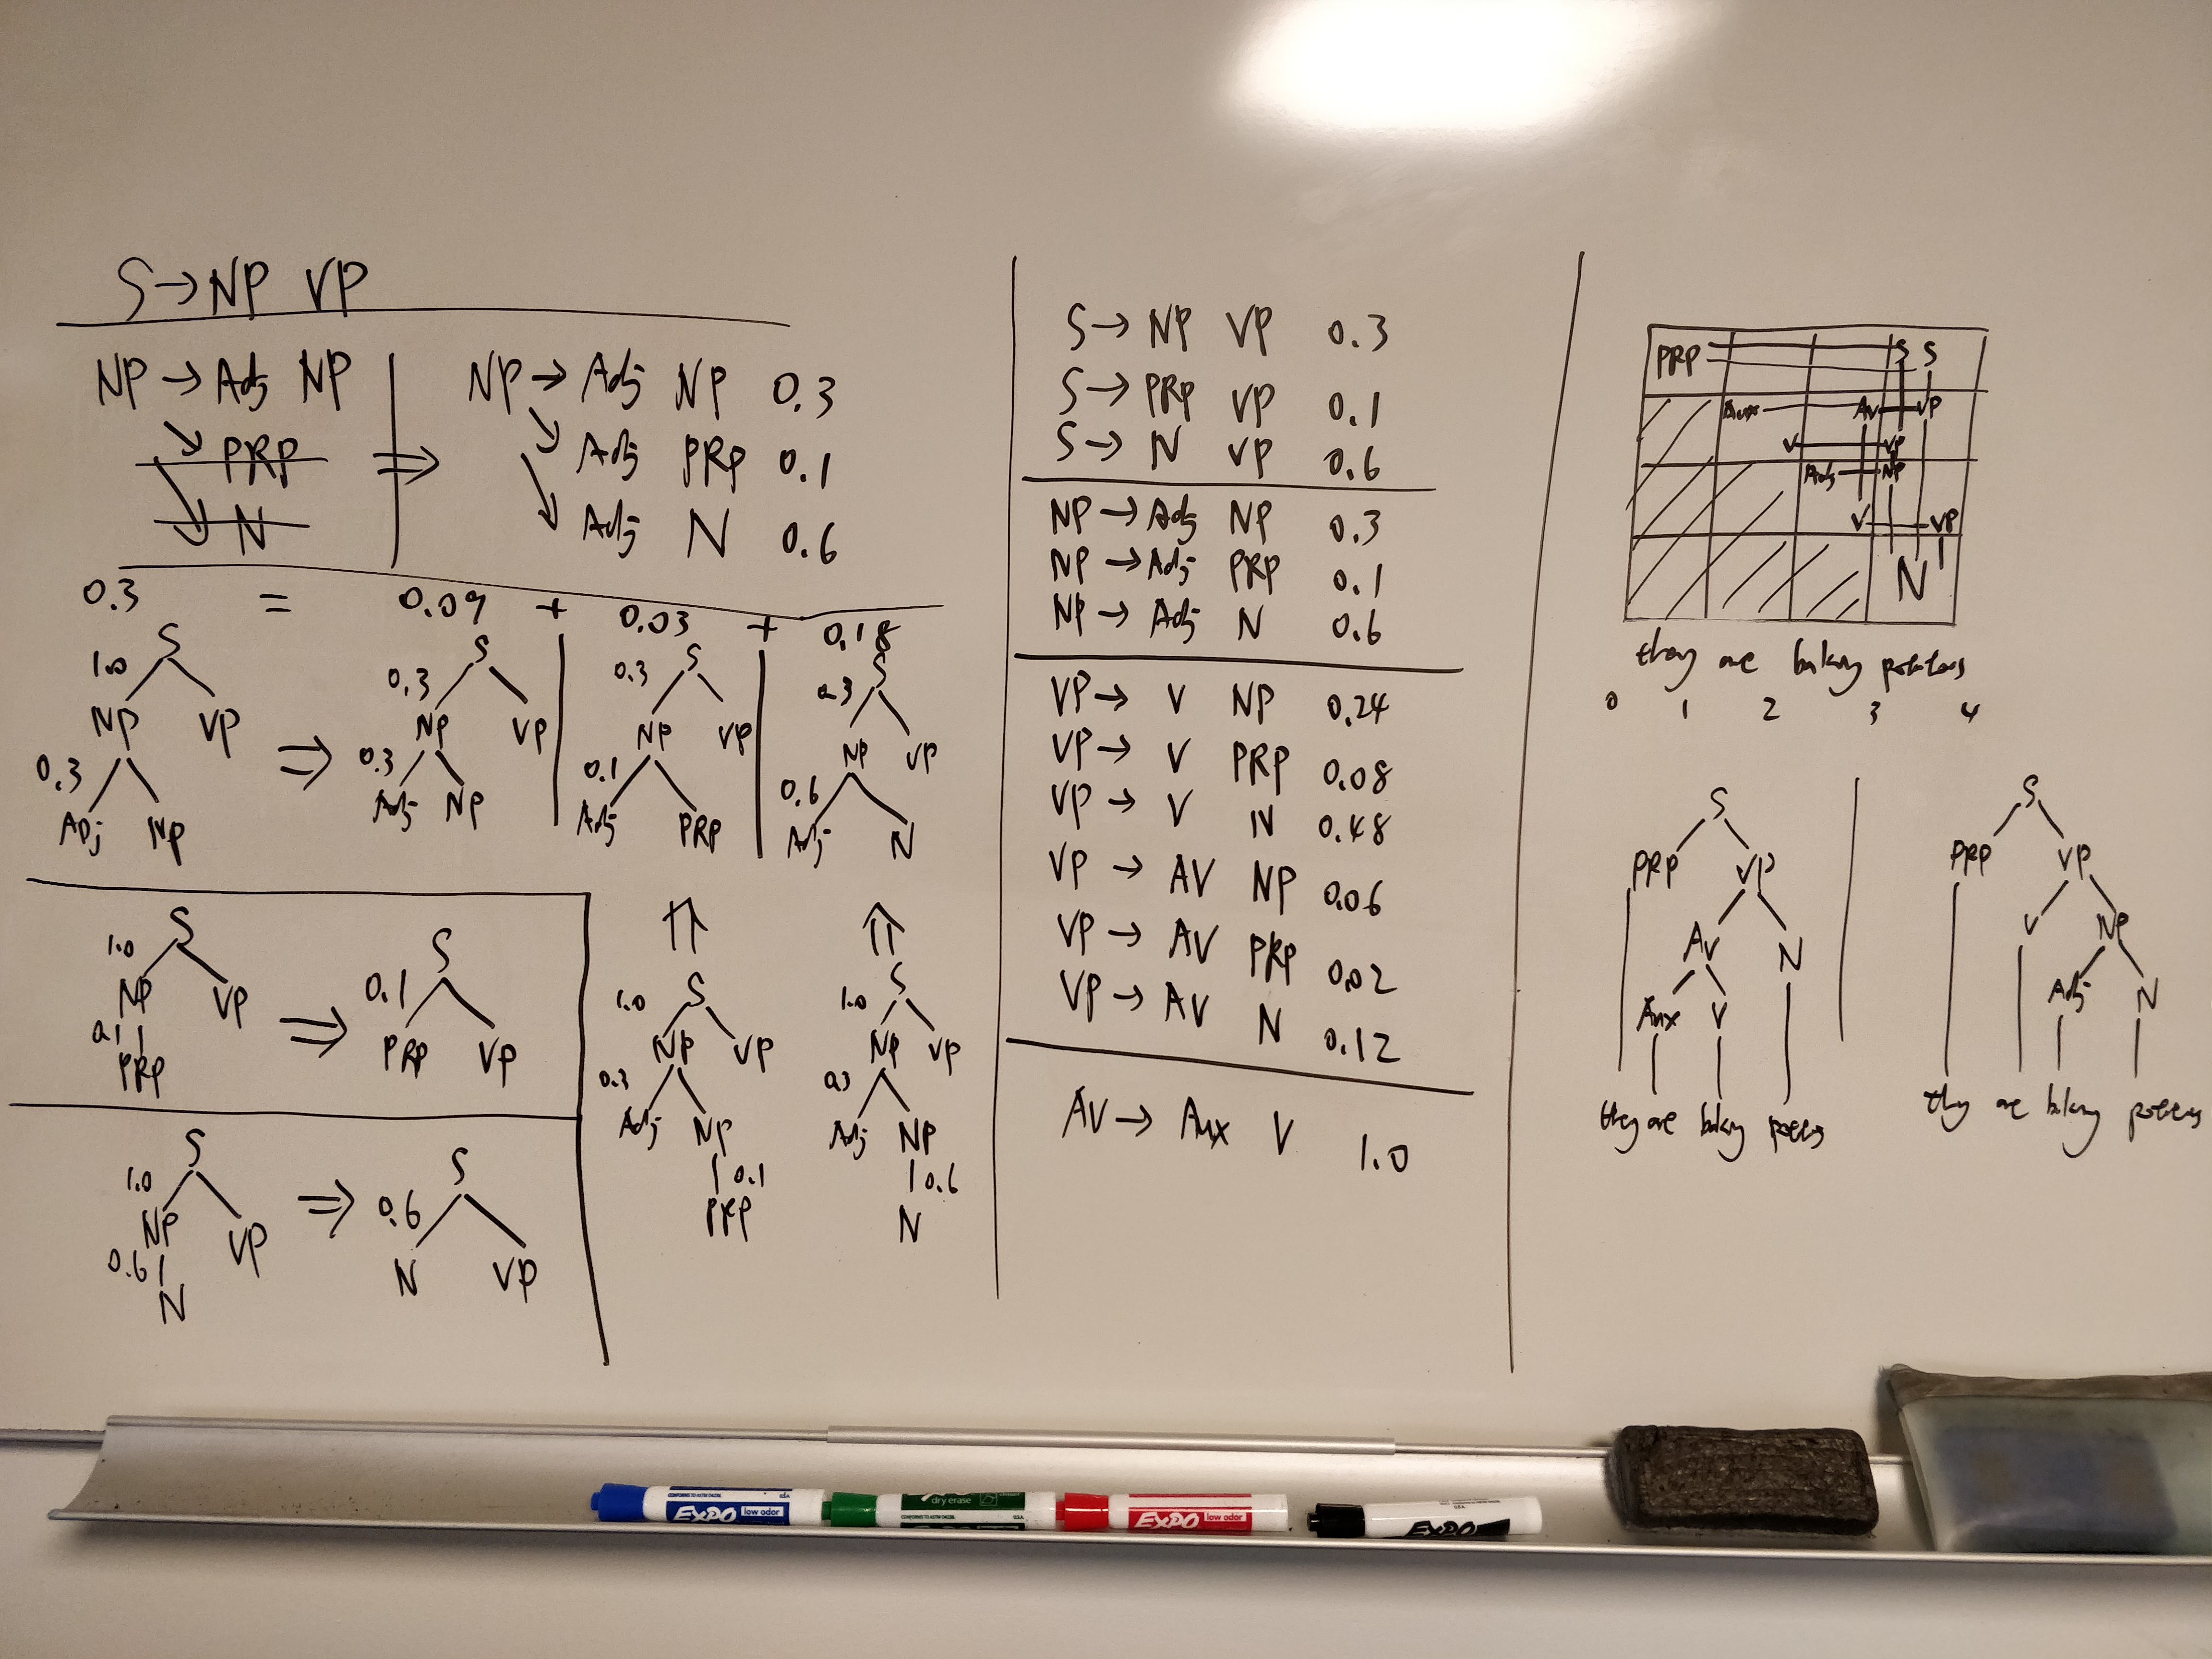 S → NP VP
NP → Adj NP
PRP
N
⇒
NP → Adj NP 0.3
Adj PRP 0.1
Adj N 0.6
0.3 = 0.09 + 0.03 + 0.18
S
1.0
NP VP
0.3
Adj NP
⇒
S
0.3
NP VP
0.3
Adj NP
S
0.3
NP VP
0.1
Adj PRP
S
0.3
NP VP
0.6
Adj N
S
1.0
NP VP
0.1
PRP
⇒
S
0.1
PRP VP
S
1.0
NP VP
0.6
N
⇒
S
0.6
N VP
⇑
S
1.0
NP VP
0.3
Adj NP
0.1
PRP
⇑
S
1.0
NP VP
0.3
Adj NP
0.6
N
S → NP VP 0.3
S → PRP VP 0.1
S → N VP 0.6
NP → Adj NP 0.3
NP → Adj PRP 0.1
NP → Adj N 0.6
VP → V NP 0.24
VP → V PRP 0.08
VP → V N 0.48
VP → AV NP 0.06
VP → AV PRP 0.02
VP → AV N 0.12
AV → Aux V 1.0
PRP S S
Aux AV VP
V VP
Adj NP
V VP
N
they are baking potatoes
0 1 2 3 4
S
PRP VP
AV N
Aux V
they are baking potatoes
S
PRP VP
V NP
Adj N
they are baking potatoes
EXPO low odor
dry erase
EXPO low odor
EXPO